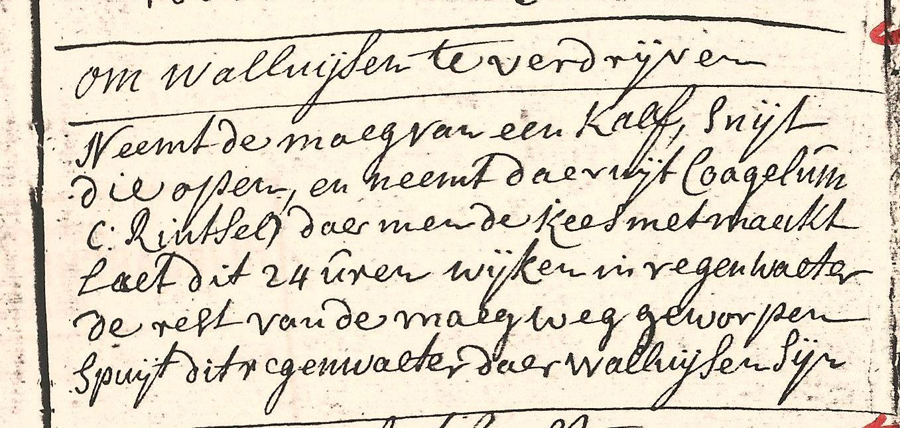 om walluijsen te verdrijven
Neemt de maeg van een kalf, snijt
die open, en neemt daer uijt Coagelum
(: Rintsel) daer men de kees met maeckt
laet dit 24 uren wijken in regenwaeter
de rest van de maeg weg geworpen
spuijt dit regenwaeter daer walluijsen sijn